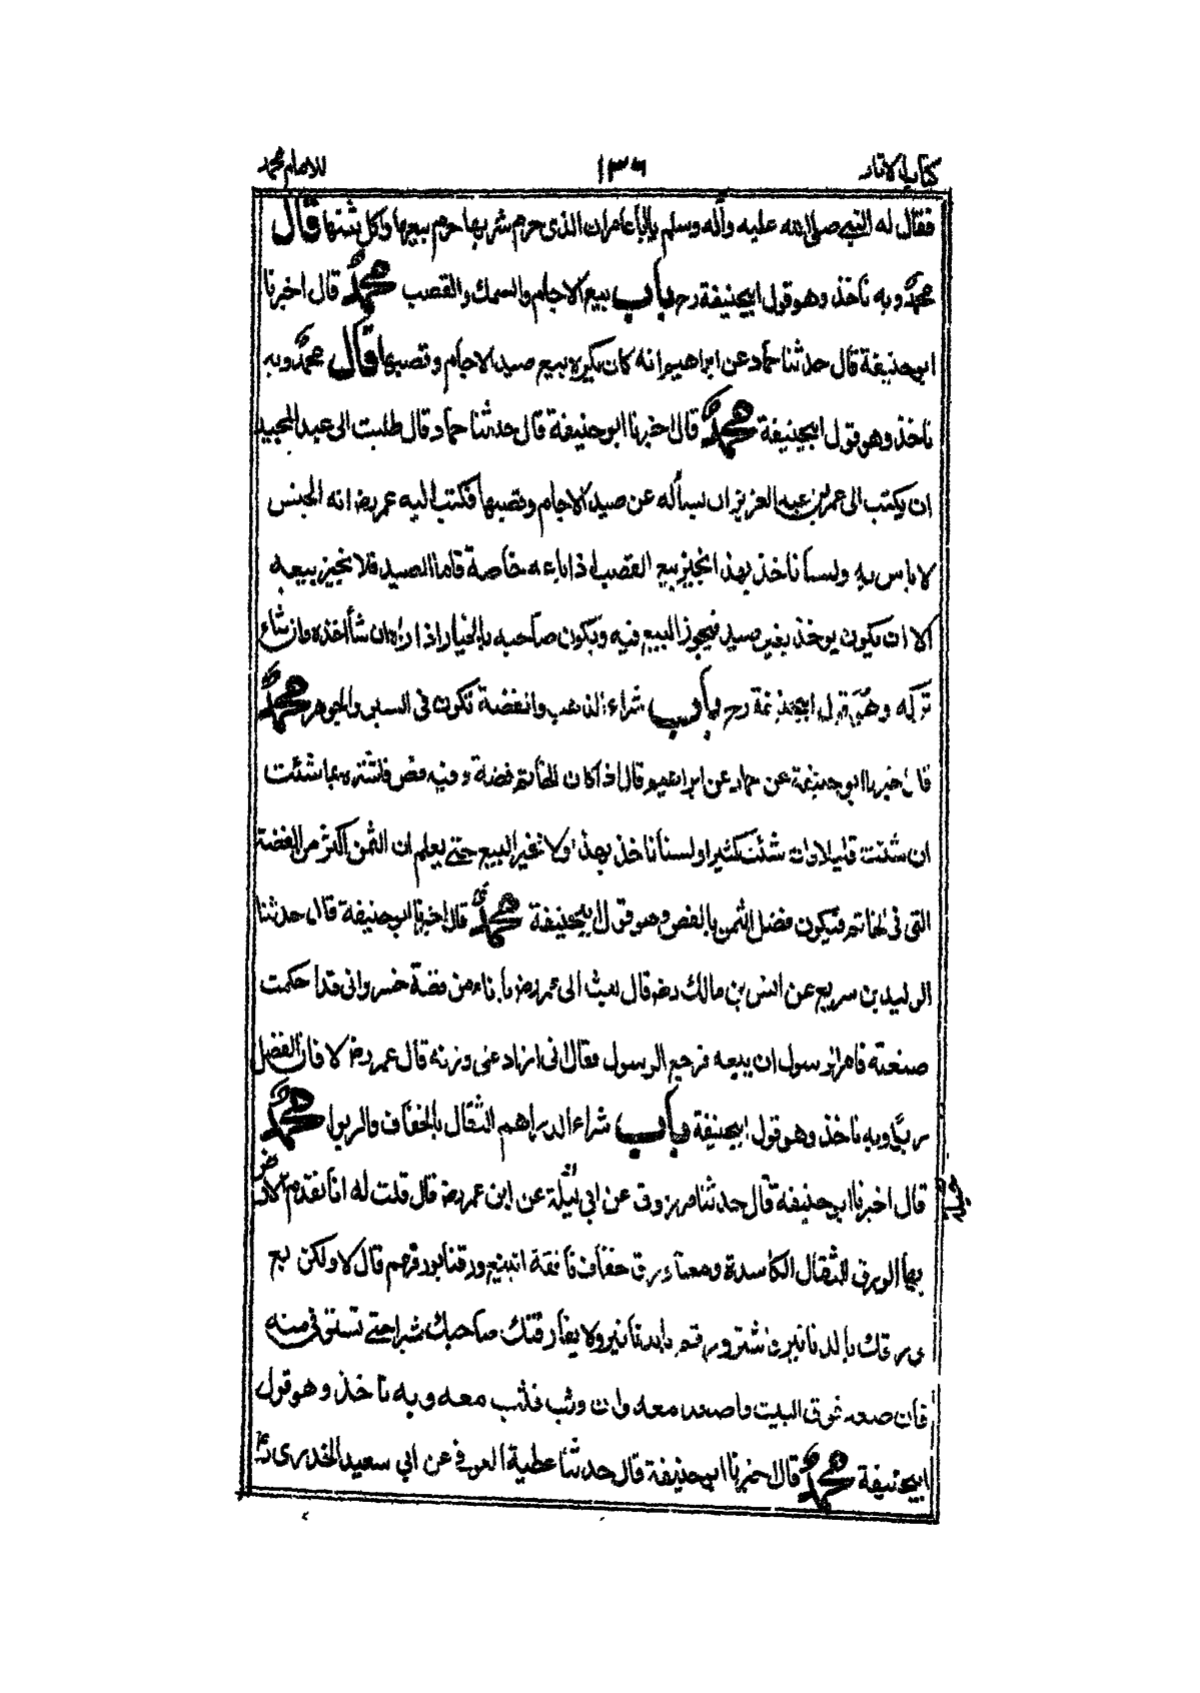 كتاب الاثار ١٣٦ للامام محمد
فقال له النبي صلى الله عليه وآله وسلم يا ابا عامر ان الذى حرم شربها حرم بيعها واكل ثمنها قال
محمد وبه ناخذ وهو قول ابيحنيفة رح باب بيع الاجام والسمك والقصب محمد قال اخبرنا
ابوحنيفة قال حدثنا حماد عن ابراهيم انه كان يكره بيع صيد الاجام وقصبها قال محمد وبه
ناخذ وهو قول ابيحنيفة محمد قال اخبرنا ابوحنيفة قال حدثنا حماد قال طلبت الى عبد المجيد
ان يكتب الى عمر بن عبد العزيز ان يسأله عن صيد الاجام وقصبها فكتب اليه عمر رض انه الحبس
لا باس به ولسنا ناخذ بهذا نجيز بيع القصب اذا باعه خاصة فاما الصيد فلا نجيز بيعه
الا ان يكون يوخذ بغير صيد فيجوز البيع فيه ويكون صاحبه بالخيار اذا راه ان شأ اخذه وان شاء
تركه وهو قول ابيحنيفة رح باب شراء الذهب والفضة تكون فى السبر والجوهر محمد
قال اخبرنا ابوحنيفة عن حماد عن ابراهيم قال اذا كان الخاتم فضة وفيه فص فاشتره بما شئت
ان شئت قليلا وان شئت كثيرا ولسنا ناخذ بهذا ولا نجيز البيع حتى يعلم ان الثمن اكثر من الفضة
التى فى الخاتم فيكون فضل الثمن بالفص وهو قول ابيحنيفة محمد قال اخبرنا ابوحنيفة قال حدثنا
الوليد بن سريع عن انس بن مالك رض قال بعث الى عمر رض باناء من فضة خسروانى قد احكمت
صنعته فامر الرسول ان يبيعه فرجع الرسول فقال انى ازاد على وزنه قال عمر رض لا فان الفضل
ربٰو وبه ناخذ وهو قول ابيحنيفة باب شراء الدراهم الثقال بالخفاف والربوا محمد
قال اخبرنا ابوحنيفة قال حدثنا مرزوق عن ابي جبلة عن ابن عمر رض قال قلت له انا نقدم الارض
بها الورق الثقال الكاسدة ومعنا ورق خفاف نافقة انبيع ورقنا بورقهم قال لا ولكن بع
ورقك بالدنانير واشتر ورقهم بالدنانير ولا يفارقك صاحبك شبرا حتى تستوفى منه
فان صعد فوق البيت فاصعد معه وان وثب فثب معه وبه ناخذ وهو قول
ابيحنيفة محمد قال اخبرنا ابوحنيفة قال حدثنا عطية العوفى عن ابي سعيد الخدرى رض